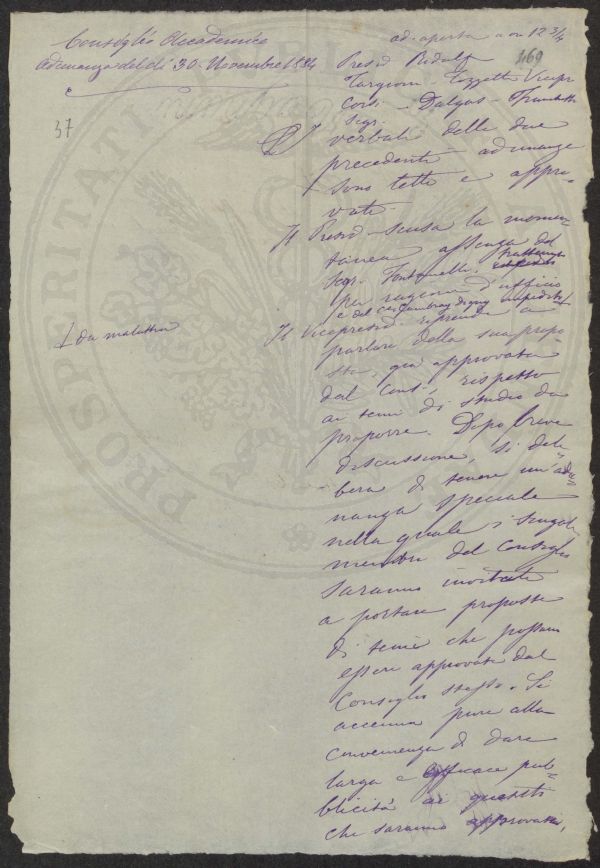 Consiglio Accademico
Adunanza del dì 30 Novembre 1884
ad. aperta a ore 12 3/4
169
37
Presid Ridolfi
Targioni-Tozzetti Vicepr
Corsi - Dalgas - Franchetti
Segr.
I verbali delle due
precedenti adunanze
sono letti e appro-
vati.
Il Presid scusa la momen-
tanea assenza del
Segr. Fontanelli, trattenuto
per ragioni d'ufficio
e del Cambray Digny impedito
da malattia
Il Vicepresid riprende a
parlare della sua propo-
sta, già approvata
dal Cons., rispetto
ai temi di studio da
proporre. Dopo breve
discussione, si deli-
bera di tenere un'adu-
nanza speciale
nella quale i singoli
membri del Consiglio
saranno invitati
a portare proposte
di temi che possano
essere approvati dal
Consiglio stesso. Si
accenna pure alla
convenienza di dare
larga e efficace pub-
blicità ai quesiti
che saranno approvati,
PROSPERITATI